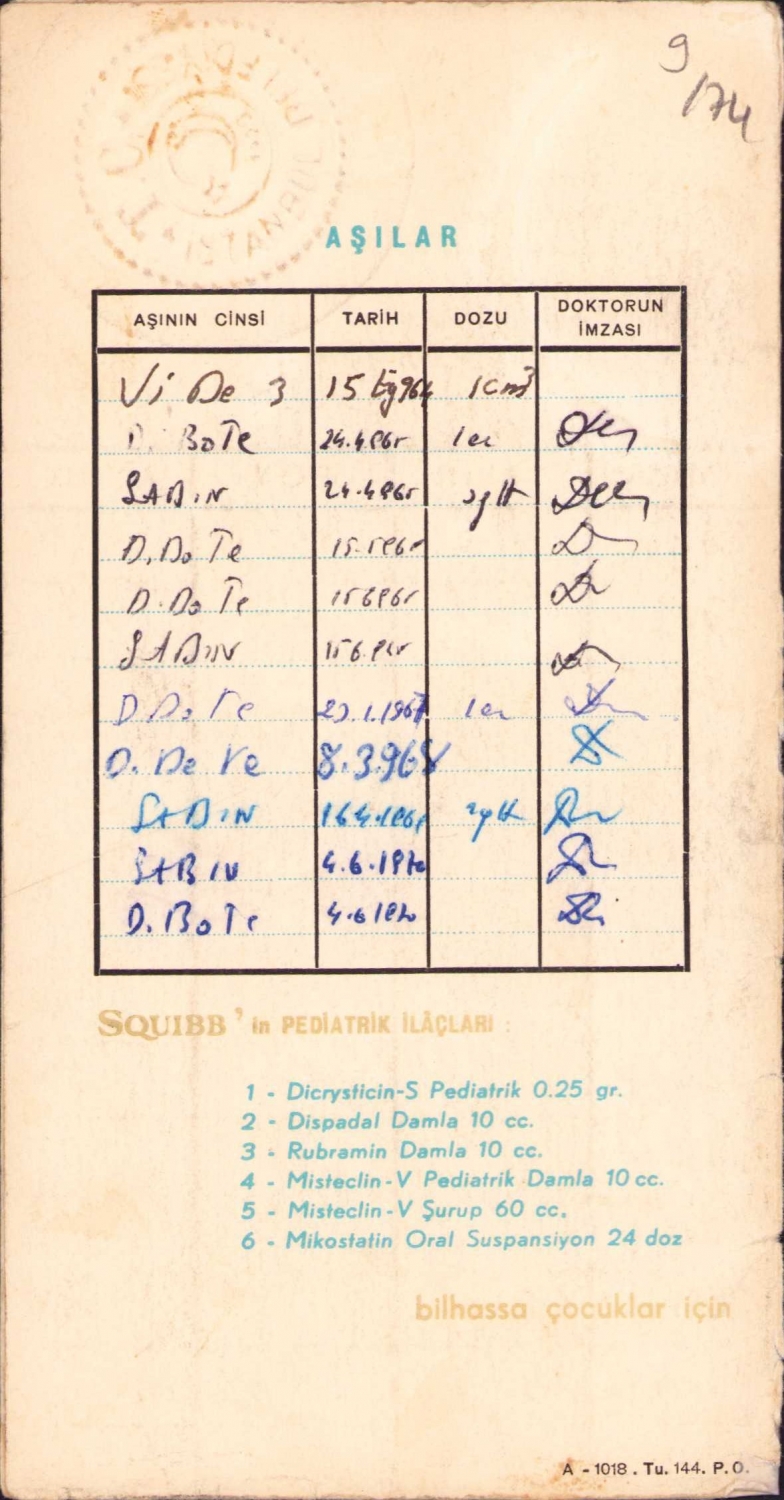 9
/174
İSTANBUL
AŞILAR
AŞININ CİNSİ TARİH DOZU DOKTORUN İMZASI
Vi De 3 15 Ey 964 1cm3
D. BoTe 24.4.965 1cc
SABIN 24.4.965
D. Bo Te
D. Bo Te 15 6 965
SABIN 15 6 965
D Bo Te 1.1967 1cc
D. Be Te 8.3.968
SABIN 16 4.196
SABIN 4.6.1970
D. BoTe 4.6 1970
SQUIBB'in PEDİATRİK İLÂÇLARI :
1 - Dicrysticin-S Pediatrik 0.25 gr.
2 - Dispadal Damla 10 cc.
3 - Rubramin Damla 10 cc.
4 - Misteclin-V Pediatrik Damla 10 cc.
5 - Misteclin-V Şurup 60 cc.
6 - Mikostatin Oral Suspansiyon 24 doz
bilhassa çocuklar için
A - 1018 . Tu. 144. P. O.